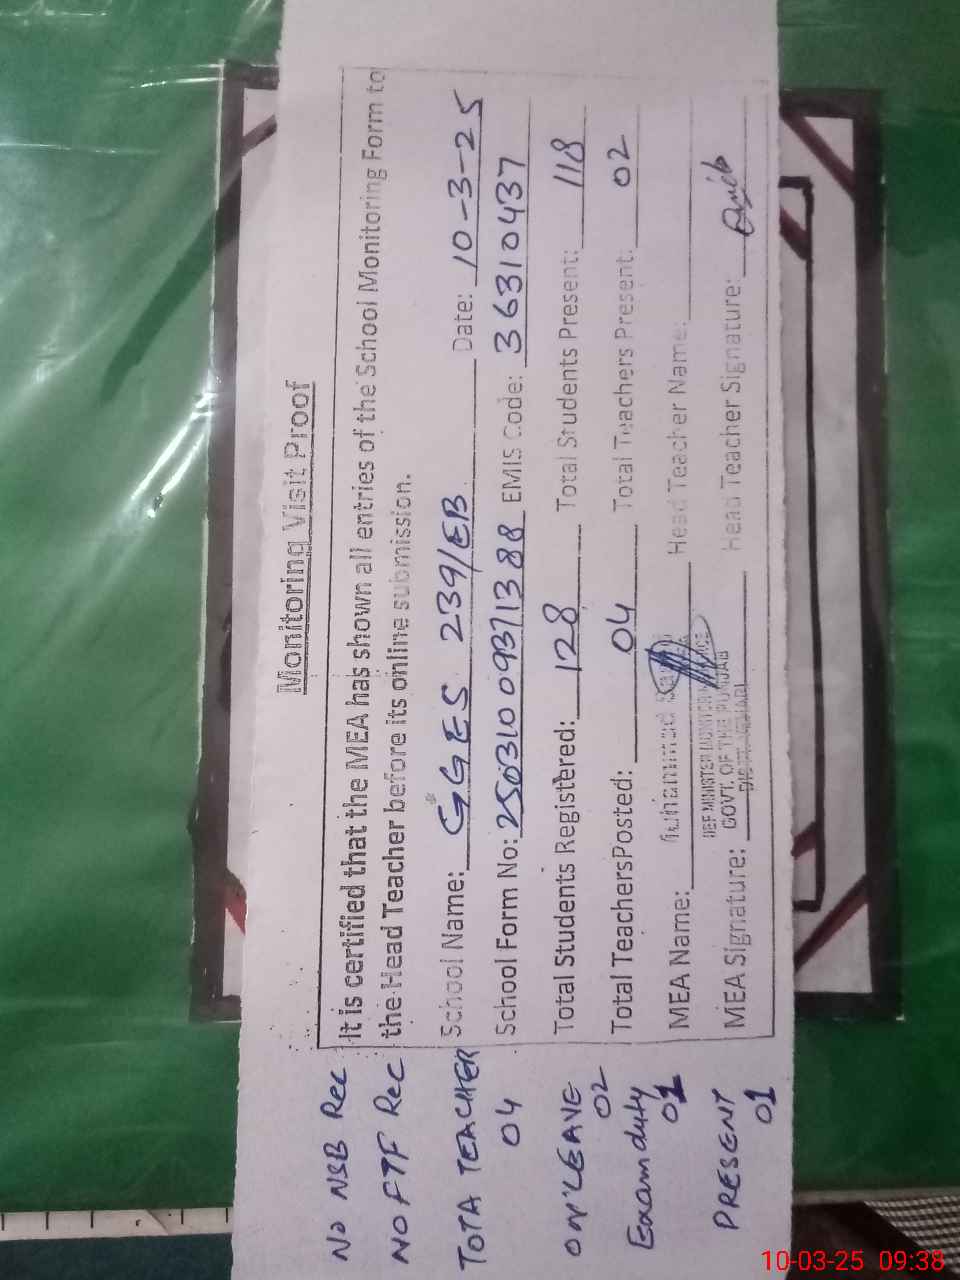 Monitoring Visit Proof
It is certified that the MEA has shown all entries of the School Monitoring Form to
the Head Teacher before its online submission.
School Name: GGES 239/EB Date: 10-3-25
School Form No: 25031009371388 EMIS Code: 36310437
Total Students Registered: 128 Total Students Present: 118
Total TeachersPosted: 04 Total Teachers Present: 02
MEA Name: Muhammad Head Teacher Name:
MEA Signature: Head Teacher Signature:
GOVT. OF THE PUNJAB
DISTT. VEHARI
No NSB Rec
NO FTF Rec
TOTA TEACHER
04
ON LEAVE
02
Examduty
01
PRESENT
01
10-03-25 09:38